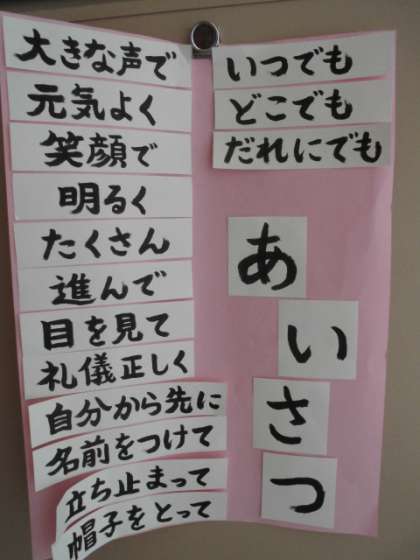 大きな声で
元気よく
笑顔で
明るく
たくさん
進んで
目を見て
礼儀正しく
自分から先に
名前をつけて
立ち止まって
帽子をとって
いつでも
どこでも
だれにでも
あいさつ